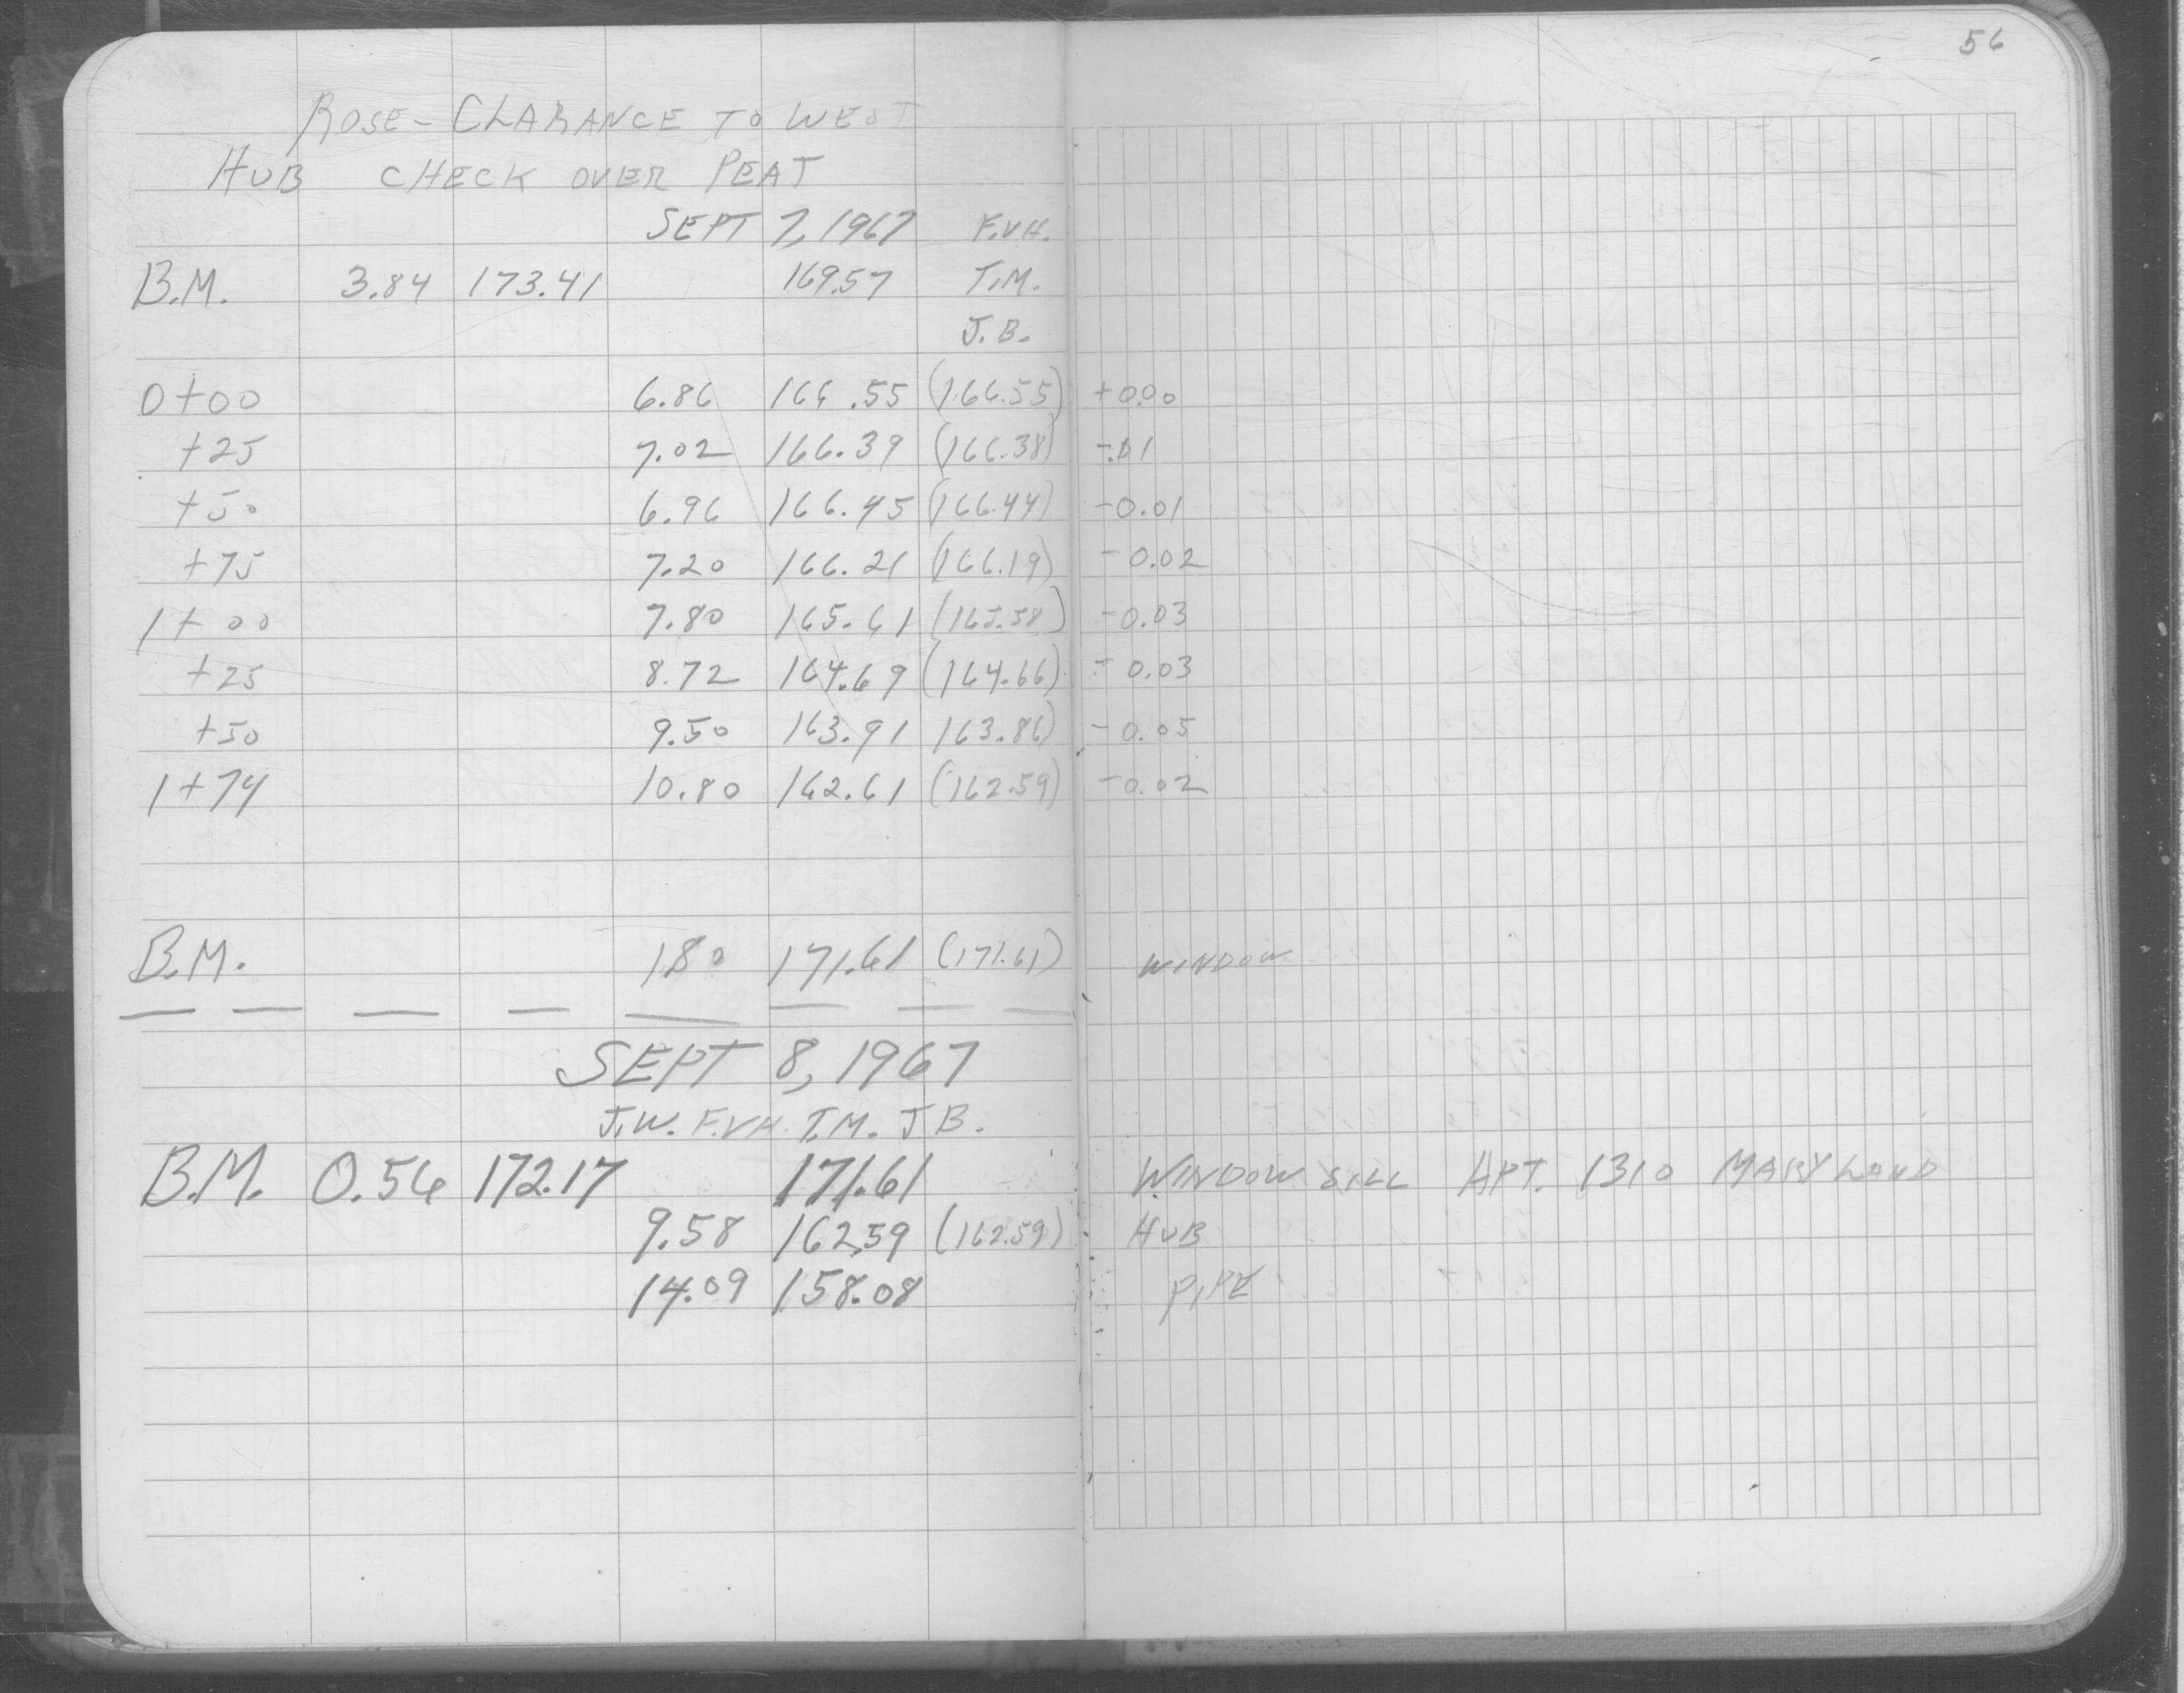 56
ROSE - CLARANCE TO WEST
HUB CHECK OVER PEAT
SEPT 7, 1967 F.V.H.
B.M. 3.84 173.41 169.57 T.M.
J.B.
0+00 6.86 166.55 (166.55) +0.00
+25 7.02 166.39 (166.38) -.01
+50 6.96 166.45 (166.44) -0.01
+75 7.20 166.21 (166.19) -0.02
1+00 7.80 165.61 (165.58) -0.03
+25 8.72 164.69 (164.66) -0.03
+50 9.50 163.91 163.86) -0.05
1+74 10.80 162.61 (162.59) -0.02
B.M. 1.80 171.61 (171.61) WINDOW
SEPT 8, 1967
J.W. F.V.H. T.M. J.B.
B.M. 0.56 172.17 171.61 WINDOW SILL APT. 1310 MARYLAND
9.58 162.59 (162.59) HUB
14.09 158.08 PIPE